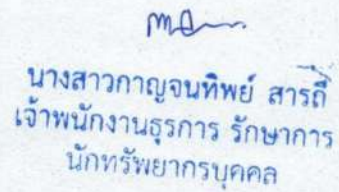 นางสาวกาญจนทิพย์ สารถี
เจ้าพนักงานธุรการ รักษาการ
นักทรัพยากรบุคคล